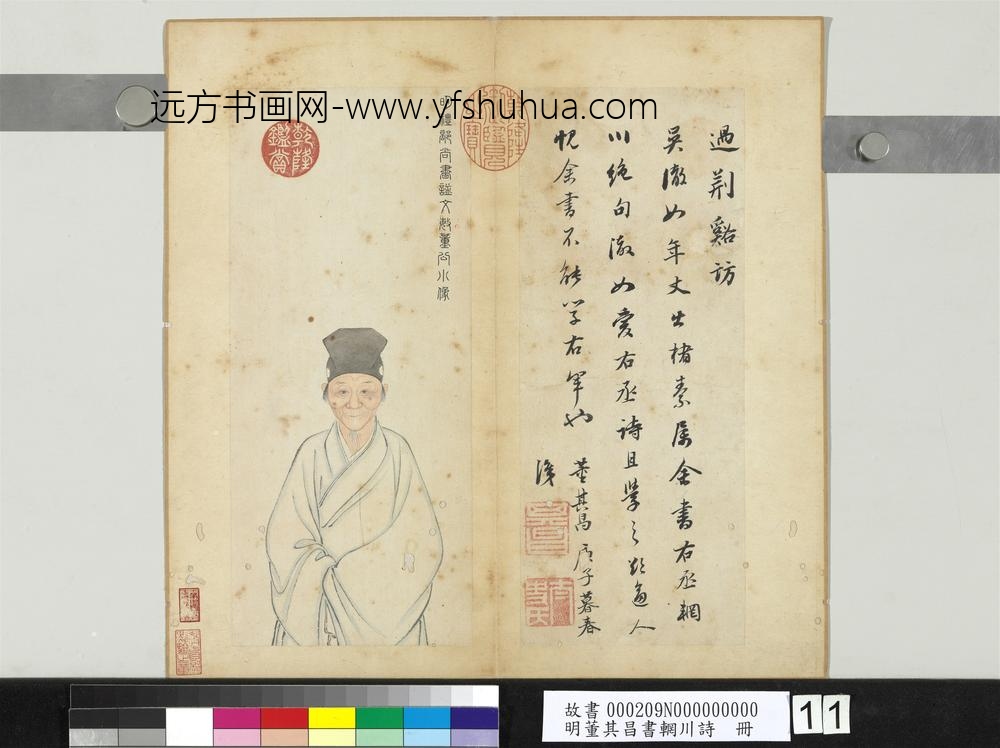 远方书画网-www.yfshuhua.com
過荆谿訪
吳澈如年丈出楮素屬余書右丞輞
川絶句澈如愛右丞詩且學之欵逼人
愧余書不能學右軍也
董其昌庚子暮春
識
明禮部尚書諡文敏董公小像
乾隆
鑑賞
故書 000209N000000000
明董其昌書輞川詩 冊
11